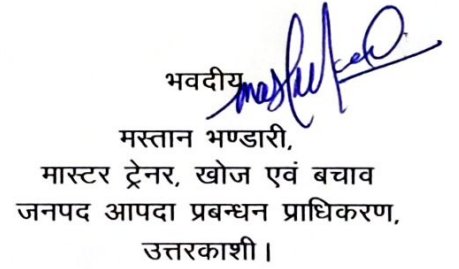 भवदीय
मस्तान भण्डारी,
मास्टर ट्रेनर, खोज एवं बचाव
जनपद आपदा प्रबन्धन प्राधिकरण,
उत्तरकाशी।